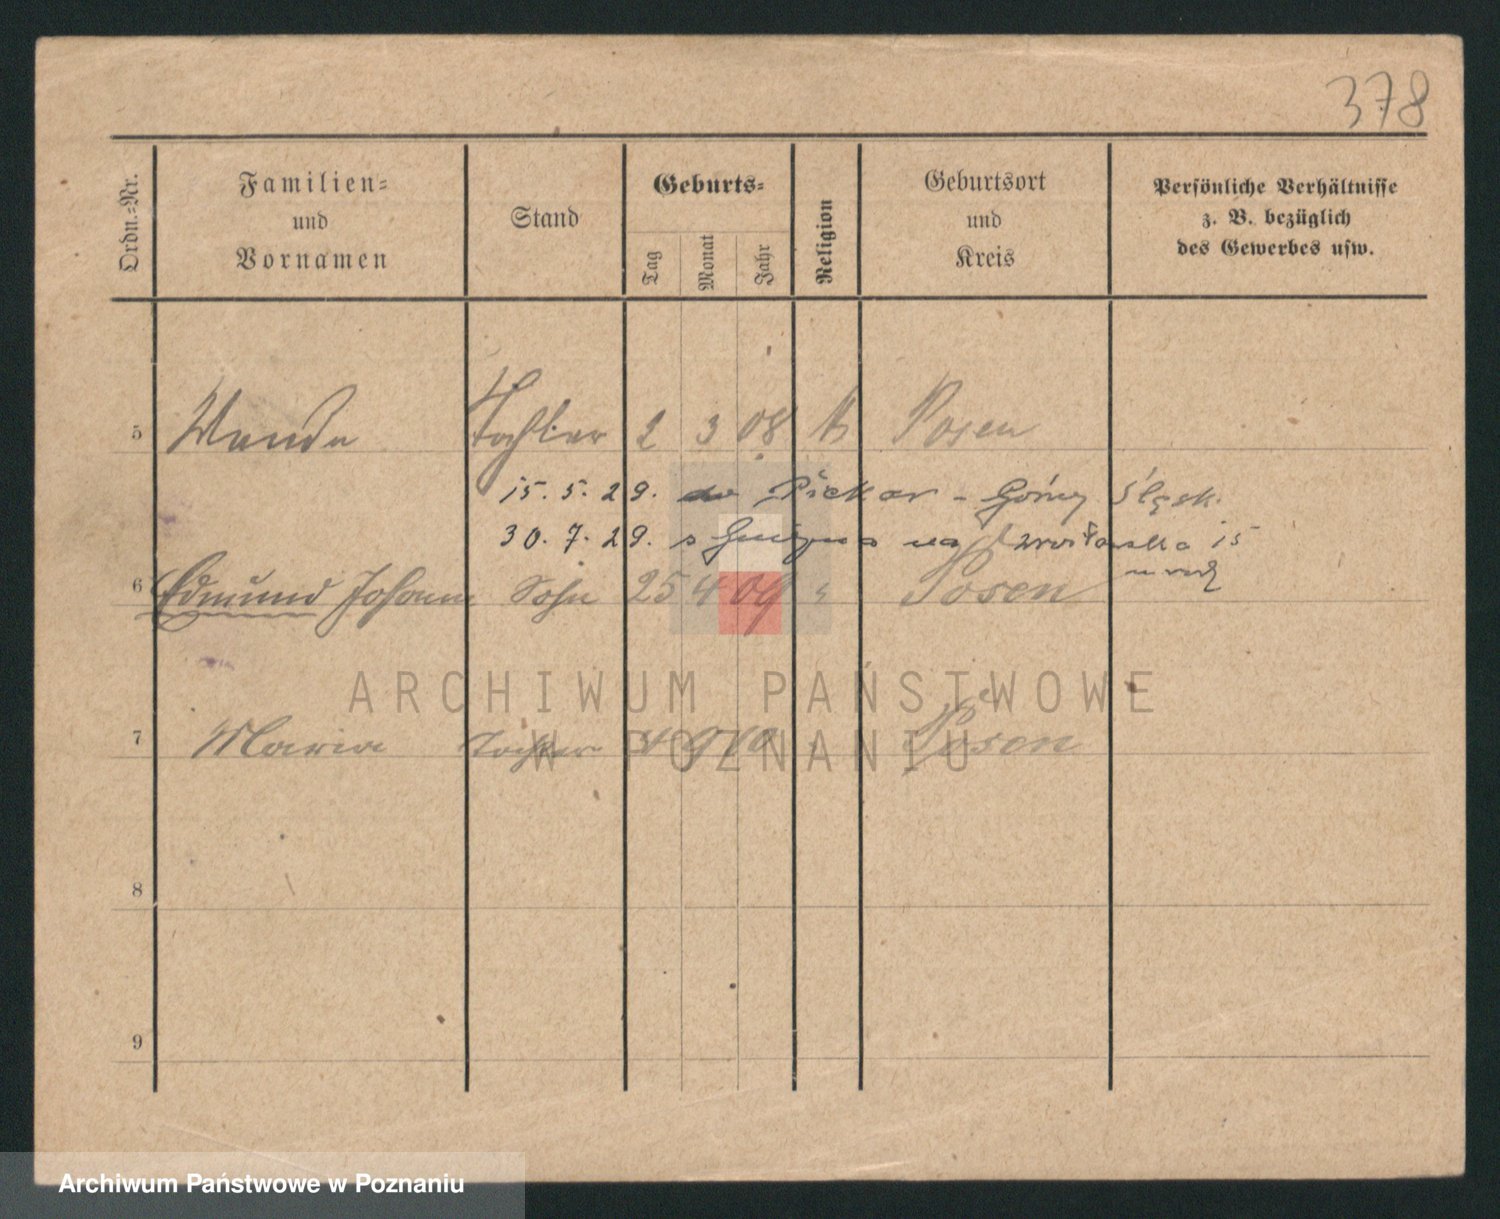 378
Ordn.-Nr.
Familien- und Vornamen
Stand
Geburts-
Tag
Monat
Jahr
Religion
Geburtsort und Kreis
Persönliche Verhältnisse z. B. bezüglich des Gewerbes usw.
5 Wanda Tochter 2 3 08 k Posen
15. 5. 29. do Piekar - Górny Śląsk.
30. 7. 29. s na 15
6 Edmund Johann Sohn 25 4 09 " Posen
7 Maria Tochter 4 9 10 " Posen
8
9
ARCHIWUM PAŃSTWOWE
W POZNANIU
Archiwum Państwowe w Poznaniu